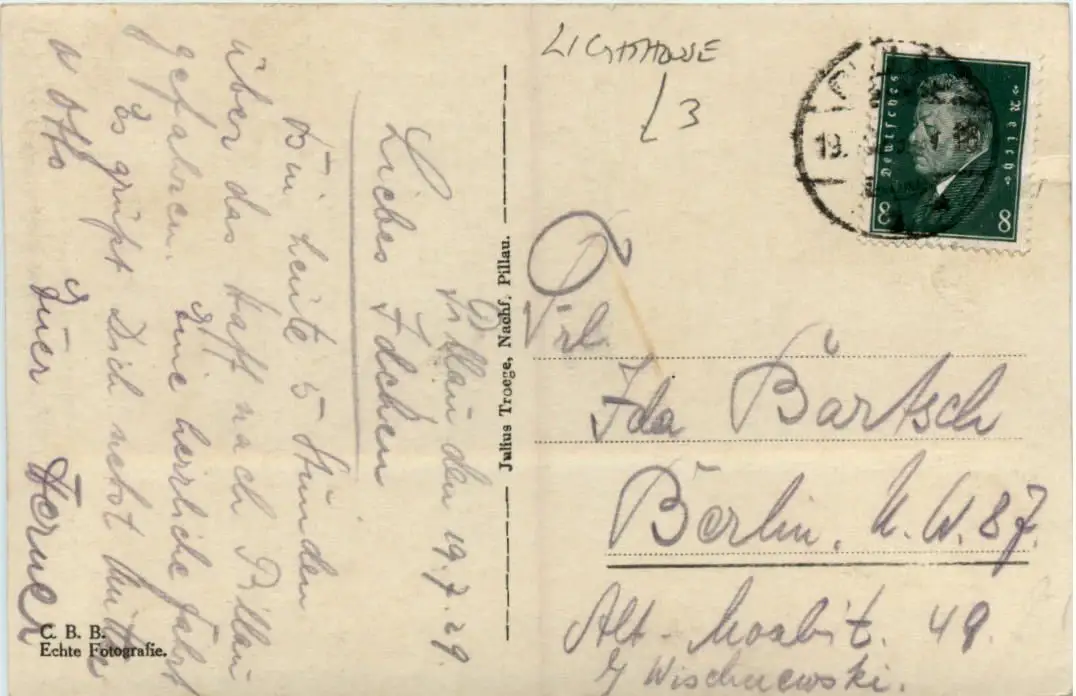 Pillau, den 19.7.29.
Liebes Idchen
Bin heute 5 Stunden
über das Haff nach Pillau
gefahren. Eine herrliche Fahrt
Es grüßt Dich nebst Mutter
u Otto Euer Werner
C. B. B.
Echte Fotografie.
Julius Troege, Nachf. Pillau.
LIGHTHOUSE
L 3
Deutsches Reich
8 8
19.
Frl.
Ida Bartsch
Berlin. N.W. 87.
Alt-Moabit. 49.
b/ Wischnewski.